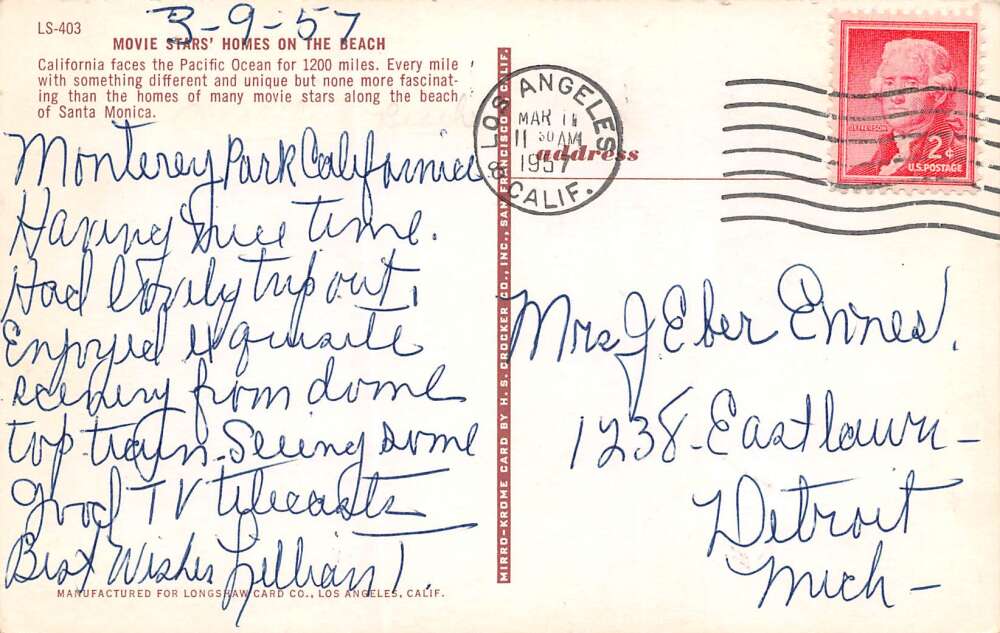 LS-403
3-9-57
MOVIE STARS' HOMES ON THE BEACH
California faces the Pacific Ocean for 1200 miles. Every mile
with something different and unique but none more fascinat-
ing than the homes of many movie stars along the beach
of Santa Monica.
Monterey Park California
Having nice time.
Had lovely trip out,
Enjoyed exquisite
scenery from dome
top train. Seeing some
good TV telecasts
Best Wishes Lillian T.
MANUFACTURED FOR LONGSHAW CARD CO., LOS ANGELES, CALIF.
MIRRO-KROME CARD BY H. S. CROCKER CO., INC., SAN FRANCISCO, CALIF.
LOS ANGELES
8 CALIF.
MAR 11
11 30 AM
1957
address
JEFFERSON
2¢
U.S. POSTAGE
Mrs J Eber Ennes.
1238 - Eastlawn -
Detroit
Mich -